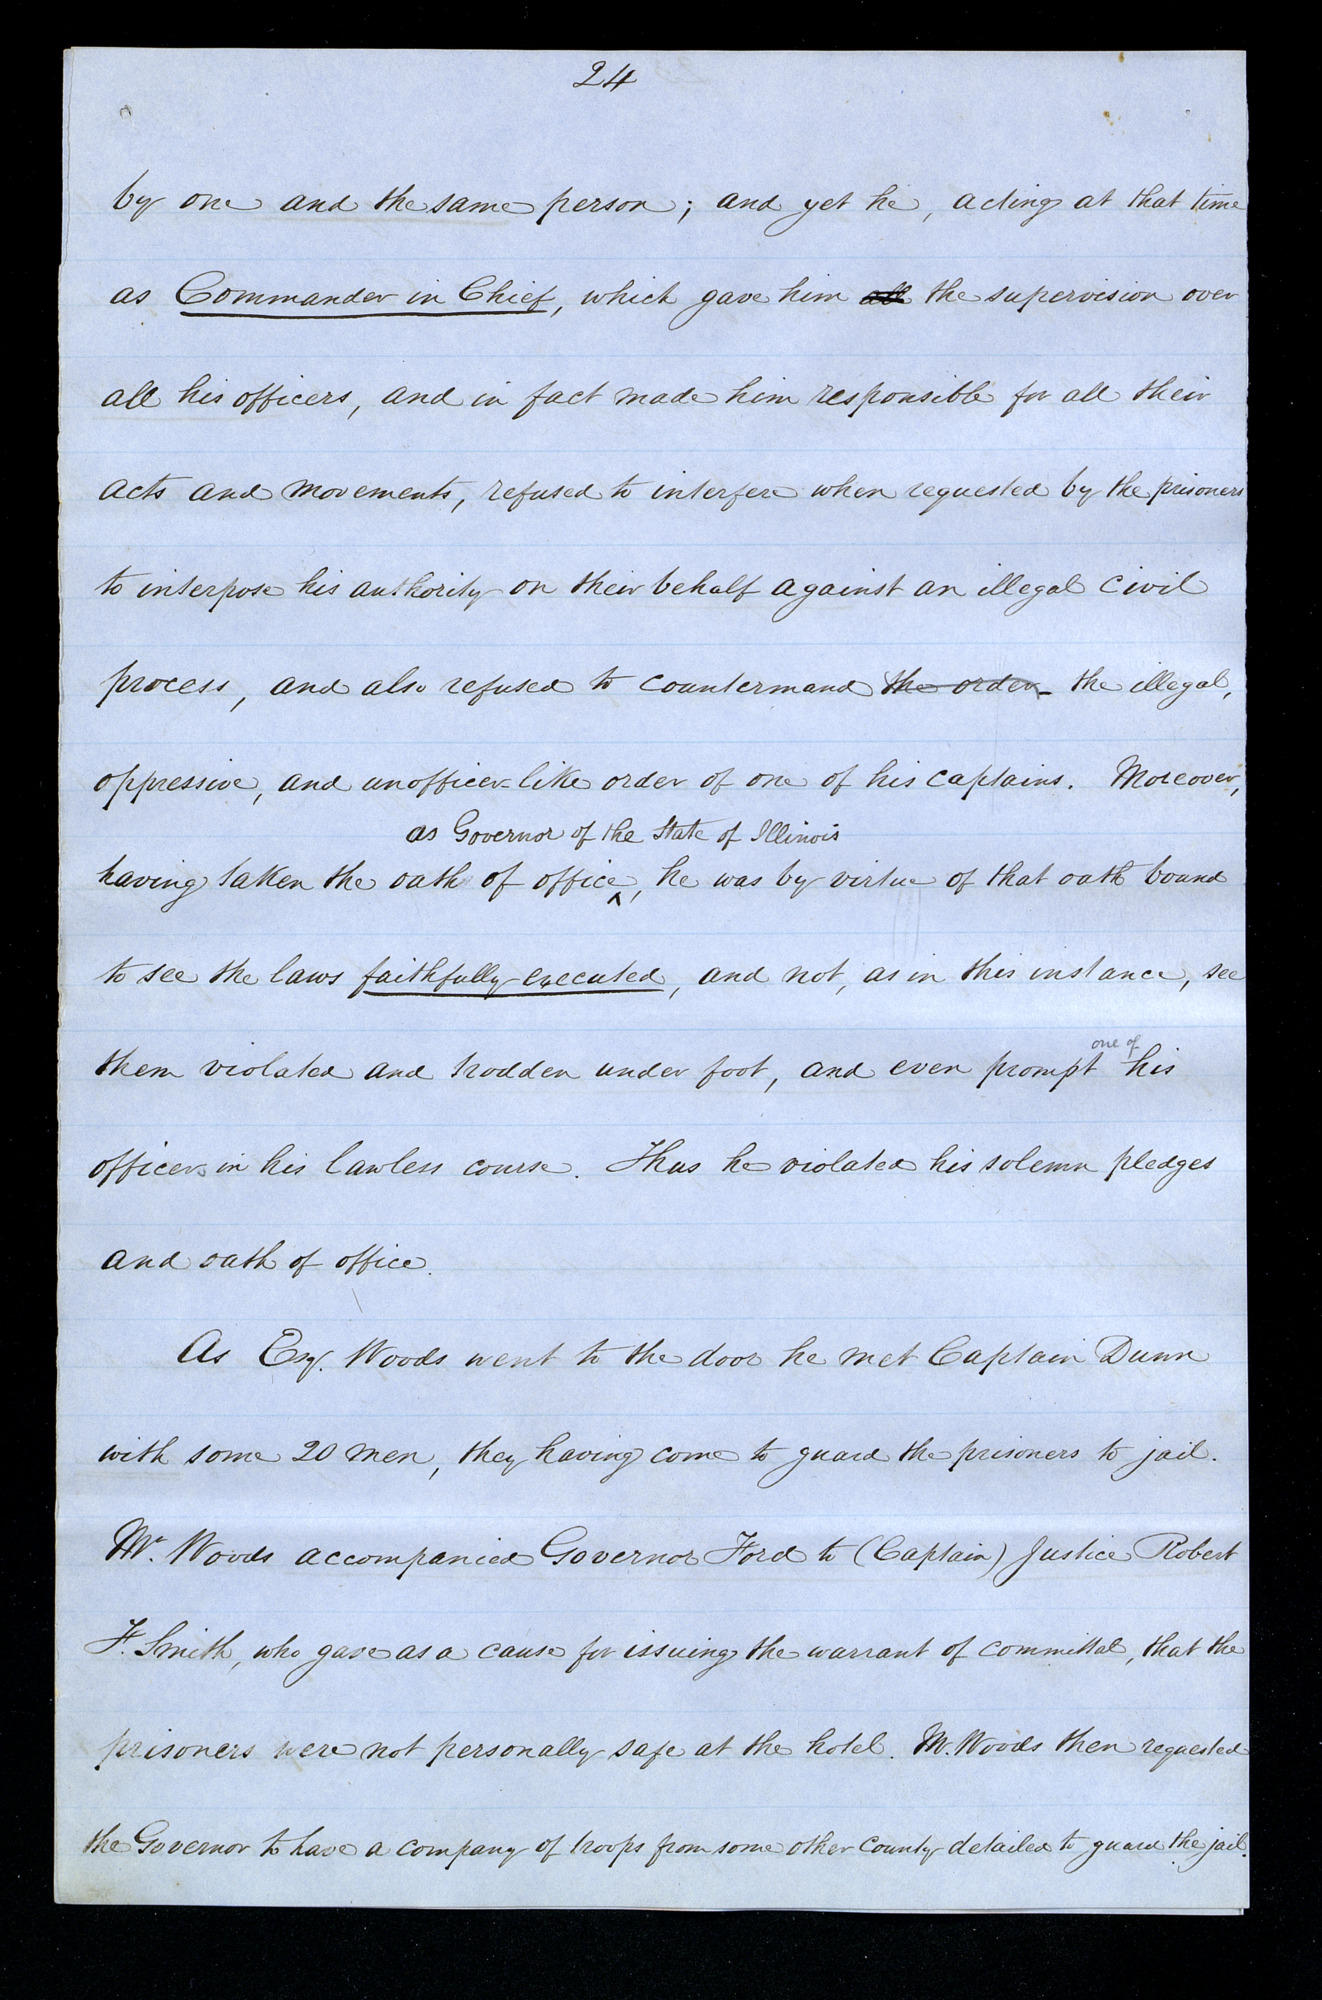 24
by one and the same person; and yet he, acting at that time
as Commander in Chief, which gave him all the supervision over
all his officers, and in fact made him responsible for all their
acts and movements, refused to interfere when requested by the prisoners
to interpose his authority on their behalf against an illegal civil
process, and also refused to countermand the order the illegal,
oppressive, and unofficer-like order of one of his captains. Moreover,
as Governor of the State of Illinois
having taken the oath of office ^, he was by virtue of that oath bound
to see the laws faithfully executed, and not, as in this instance, see
one of
them violated and trodden under foot, and even prompt his
officers in his lawless course. Thus he violated his solemn pledges
and oath of office.
As Esq. Woods went to the door he met Captain Dunn
with some 20 men, they having come to guard the prisoners to jail.
Mr. Woods accompanied Governor Ford to (Captain) Justice Robert
F. Smith, who gave as a cause for issuing the warrant of committal, that the
prisoners were not personally safe at the hotel. Mr. Woods then requested
the Governor to have a company of troops from some other county detailed to guard the jail.